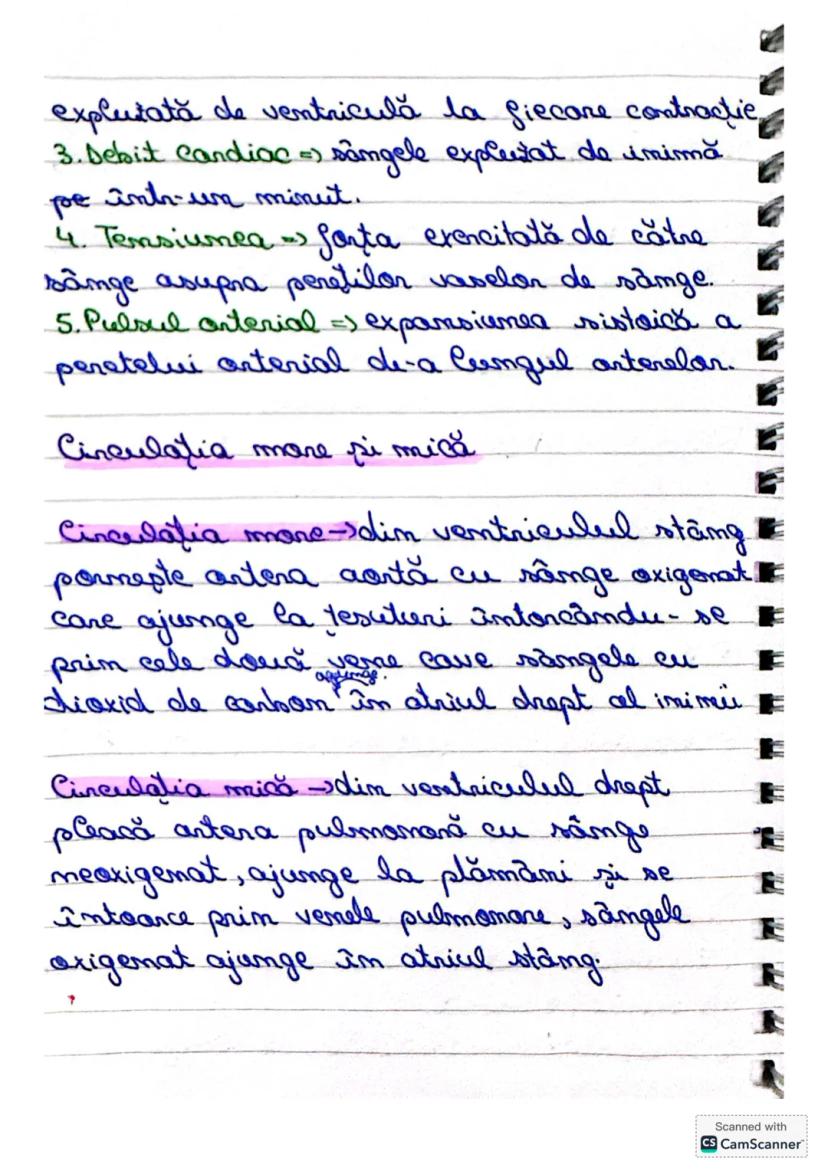 expluzată de ventriculă la fiecare contracție
3. Debit cardiac => sângele expluzat de inimă
pe într-un minut.
4. Tensiunea => forța exercitată de către
sânge asupra pereților vaselor de sânge.
5. Pulsul arterial => expansiunea sistoică a
peretelui arterial de-a lungul arterelor.
Circulația mare și mică
Circulația mare -> din ventriculul stâng
pornește artera aortă cu sânge oxigenat
care ajunge la țesuturi întorcându-se
prin cele două vene cave sângele cu
ajunge
dioxid de carbon în atriul drept al inimii
Circulația mică -> din ventriculul drept
pleacă artera pulmonară cu sânge
neoxigenat, ajunge la plămâni și se
întoarce prin venele pulmonare, sângele
oxigenat ajunge în atriul stâng.
Scanned with
CS CamScanner